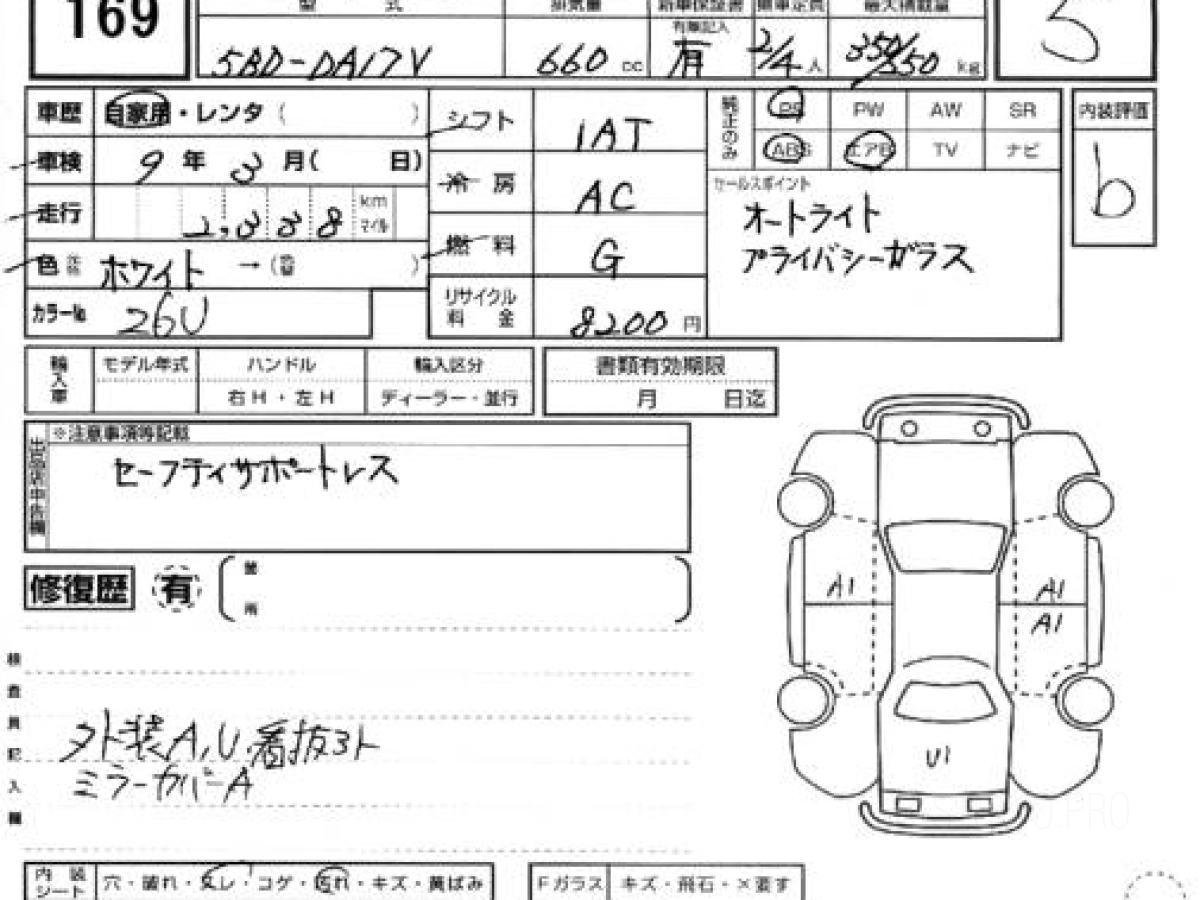 169
型 式 排気量 新車保証書 乗車定員 最大積載量
有無記入
5BD-DA17V 660 cc 有 2/4人 350/350 kg 5
車歴 自家用・レンタ( ) シフト 1AT 純正のみ PS PW AW SR 内装評価
車検 9年 3月( 日) 冷房 AC ABS エアB TV ナビ b
走行 2,338 km マイル セールスポイント
オートライト
プライバシーガラス
色 ホワイト →( ) 燃料 G
カラー№ 26U リサイクル料金 8200円
輸入車 モデル年式 ハンドル 輸入区分 書類有効期限
右H・左H ディーラー・並行 月 日迄
出品店申告欄 ※注意事項等記載
セーフティサポートレス
修復歴 有 箇所
A1 A1
A1
検査員記入欄
外装A,U 看抜きト
ミラーカバーA
U1
内装シート 穴・破れ・スレ・コゲ・汚れ・キズ・黄ばみ Fガラス キズ・飛石・×要す